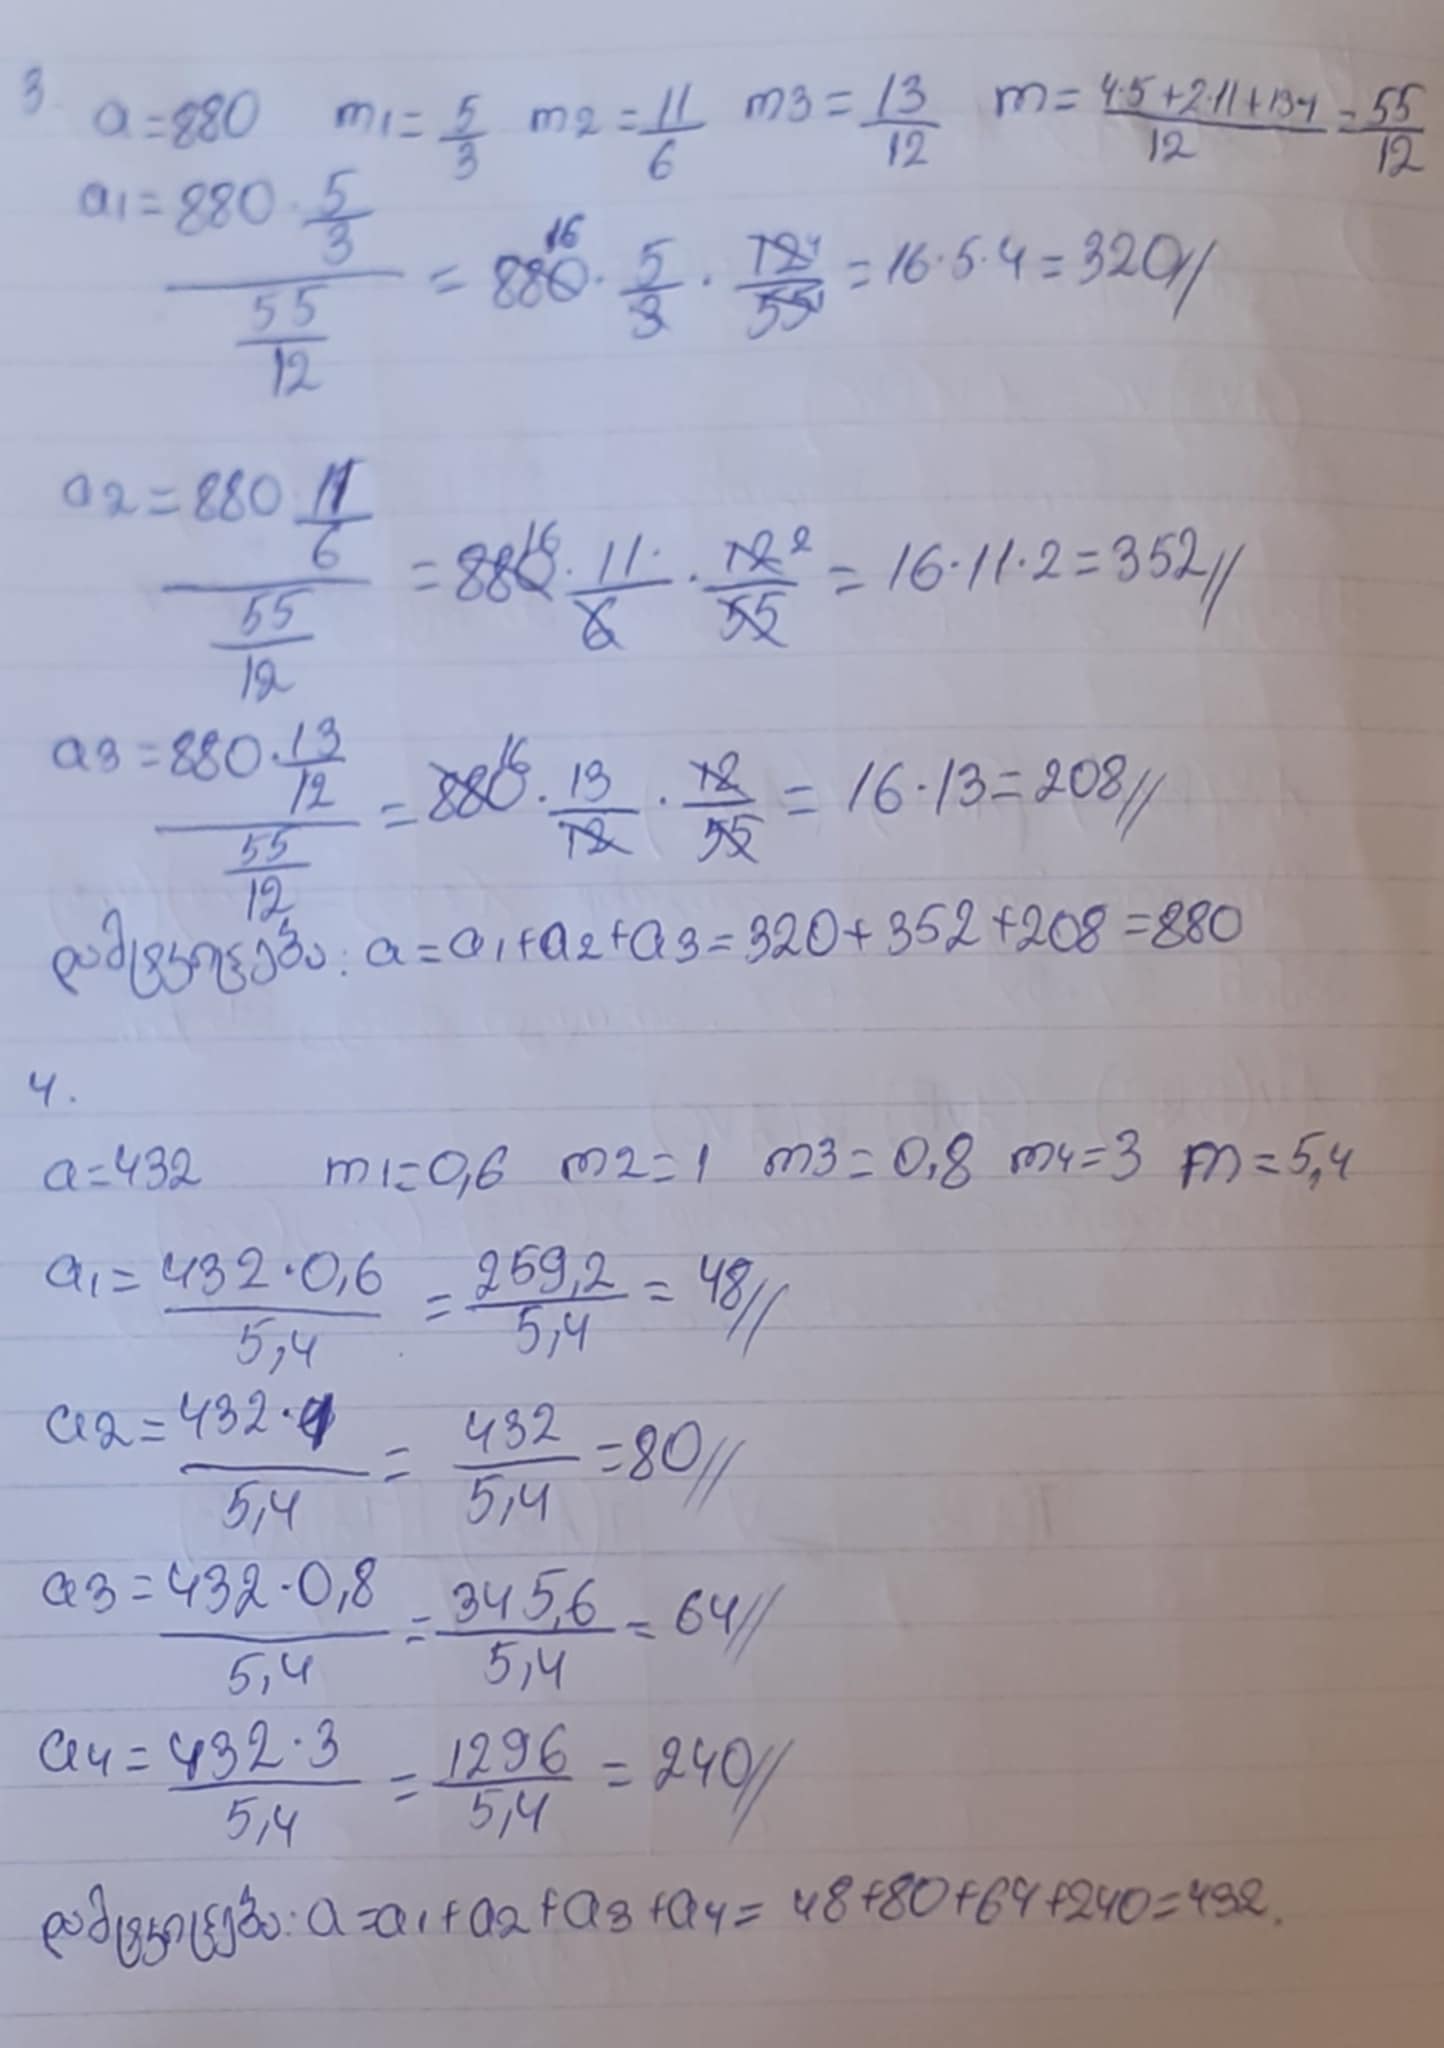 3. a=880 m1=5/3 m2=11/6 m3=13/12 m=4·5+2·11+13·1/12=55/12
a1=880·5/3 / 55/12 =880 16·5/3·12 4/55 1=16·5·4=320//
a2=880 11/6 / 55/12 =880 16·11·/6·12 2/55=16·11·2=352//
a3=880·13/12 / 55/12 =880 16·13/12·12/55=16·13=208//
დამტკიცება: a=a1+a2+a3=320+352+208=880
4.
a=432 m1=0,6 m2=1 m3=0,8 m4=3 m=5,4
a1=432·0,6/5,4=259,2/5,4=48//
a2=432·1/5,4=432/5,4=80//
a3=432·0,8/5,4=345,6/5,4=64//
a4=432·3/5,4=1296/5,4=240//
დამტკიცება: a=a1+a2+a3+a4=48+80+64+240=432.